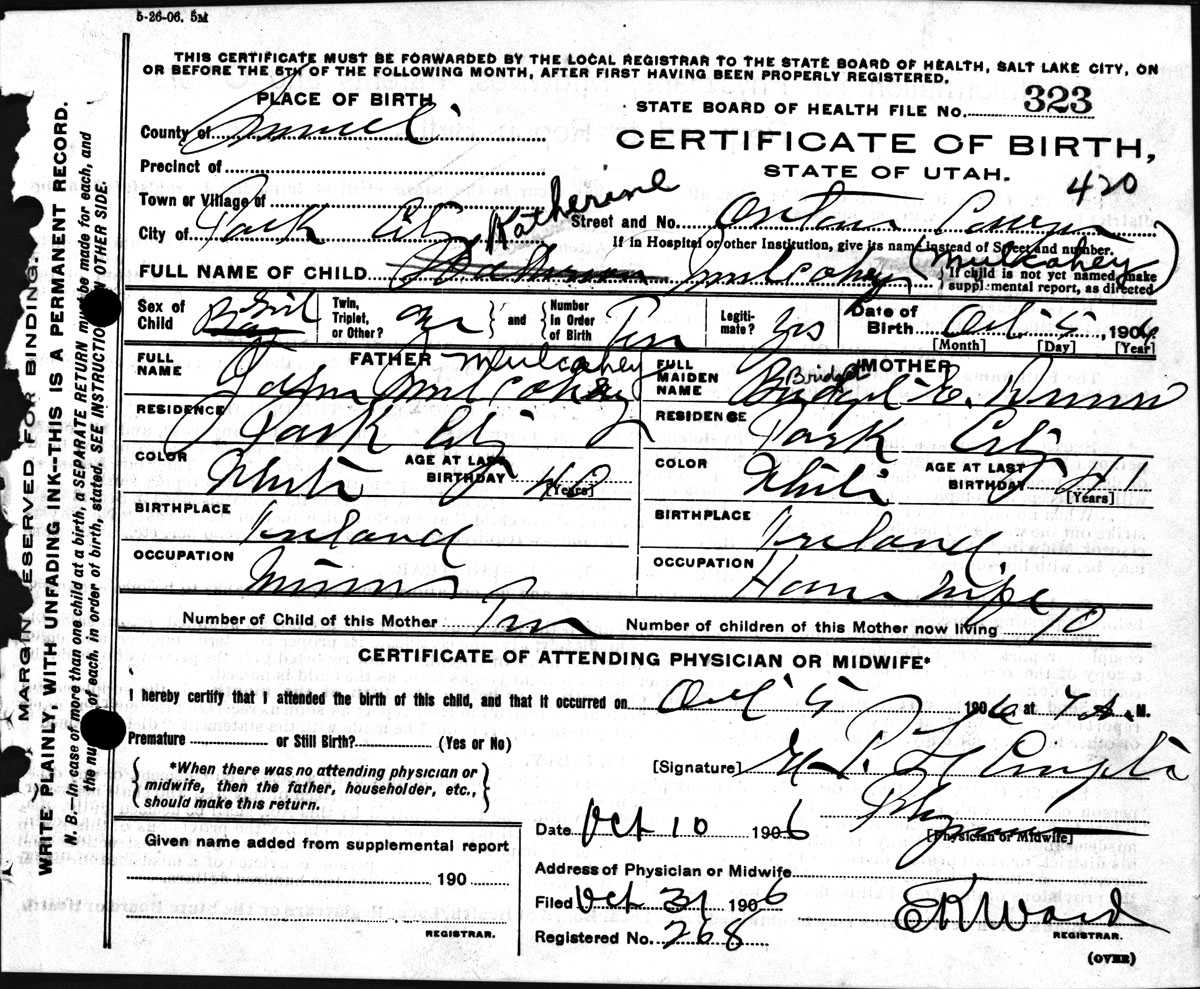 5-26-06. 5M
THIS CERTIFICATE MUST BE FORWARDED BY THE LOCAL REGISTRAR TO THE STATE BOARD OF HEALTH, SALT LAKE CITY, ON
OR BEFORE THE 5TH OF THE FOLLOWING MONTH, AFTER FIRST HAVING BEEN PROPERLY REGISTERED.
PLACE OF BIRTH
STATE BOARD OF HEALTH FILE No. 323
County of Summit
CERTIFICATE OF BIRTH,
Precinct of
STATE OF UTAH.
420
Town or Village of
Katherine
City of Park City
Street and No.
If in Hospital or other Institution, give its name instead of Street and number.
FULL NAME OF CHILD Mulcahey (Mulcahey)
If child is not yet named, make
supplemental report, as directed
Sex of Child Boy Girl
Twin, Triplet, or Other?
and
Number In Order of Birth Ten
Legitimate? Yes
Date of Birth Oct 5, 1906
[Month] [Day] [Year]
FATHER
FULL NAME John Mulcahey Mulcahey
RESIDENCE Park City
COLOR White
AGE AT LAST BIRTHDAY 40 [Years]
BIRTHPLACE Ireland
OCCUPATION Miner
MOTHER
FULL MAIDEN NAME Bridget Bridget E. Dunn
RESIDENCE Park City
COLOR White
AGE AT LAST BIRTHDAY 41 [Years]
BIRTHPLACE Ireland
OCCUPATION House wife
Number of Child of this Mother Ten Number of children of this Mother now living 10
CERTIFICATE OF ATTENDING PHYSICIAN OR MIDWIFE*
I hereby certify that I attended the birth of this child, and that it occurred on Oct 5 1906 at 7 A. M.
Premature or Still Birth? (Yes or No)
[Signature]
*When there was no attending physician or
midwife, then the father, householder, etc.,
should make this return.
Date Oct 10 1906
[Physician or Midwife]
Given name added from supplemental report
190
REGISTRAR.
Address of Physician or Midwife
Filed Oct 31 1906
E K Ward
REGISTRAR.
Registered No. 268
(OVER)
MARGIN RESERVED FOR BINDING.
WRITE PLAINLY, WITH UNFADING INK—THIS IS A PERMANENT RECORD.
N. B.—In case of more than one child at a birth, a SEPARATE RETURN must be made for each, and
the number of each, in order of birth, stated. SEE INSTRUCTION ON OTHER SIDE.